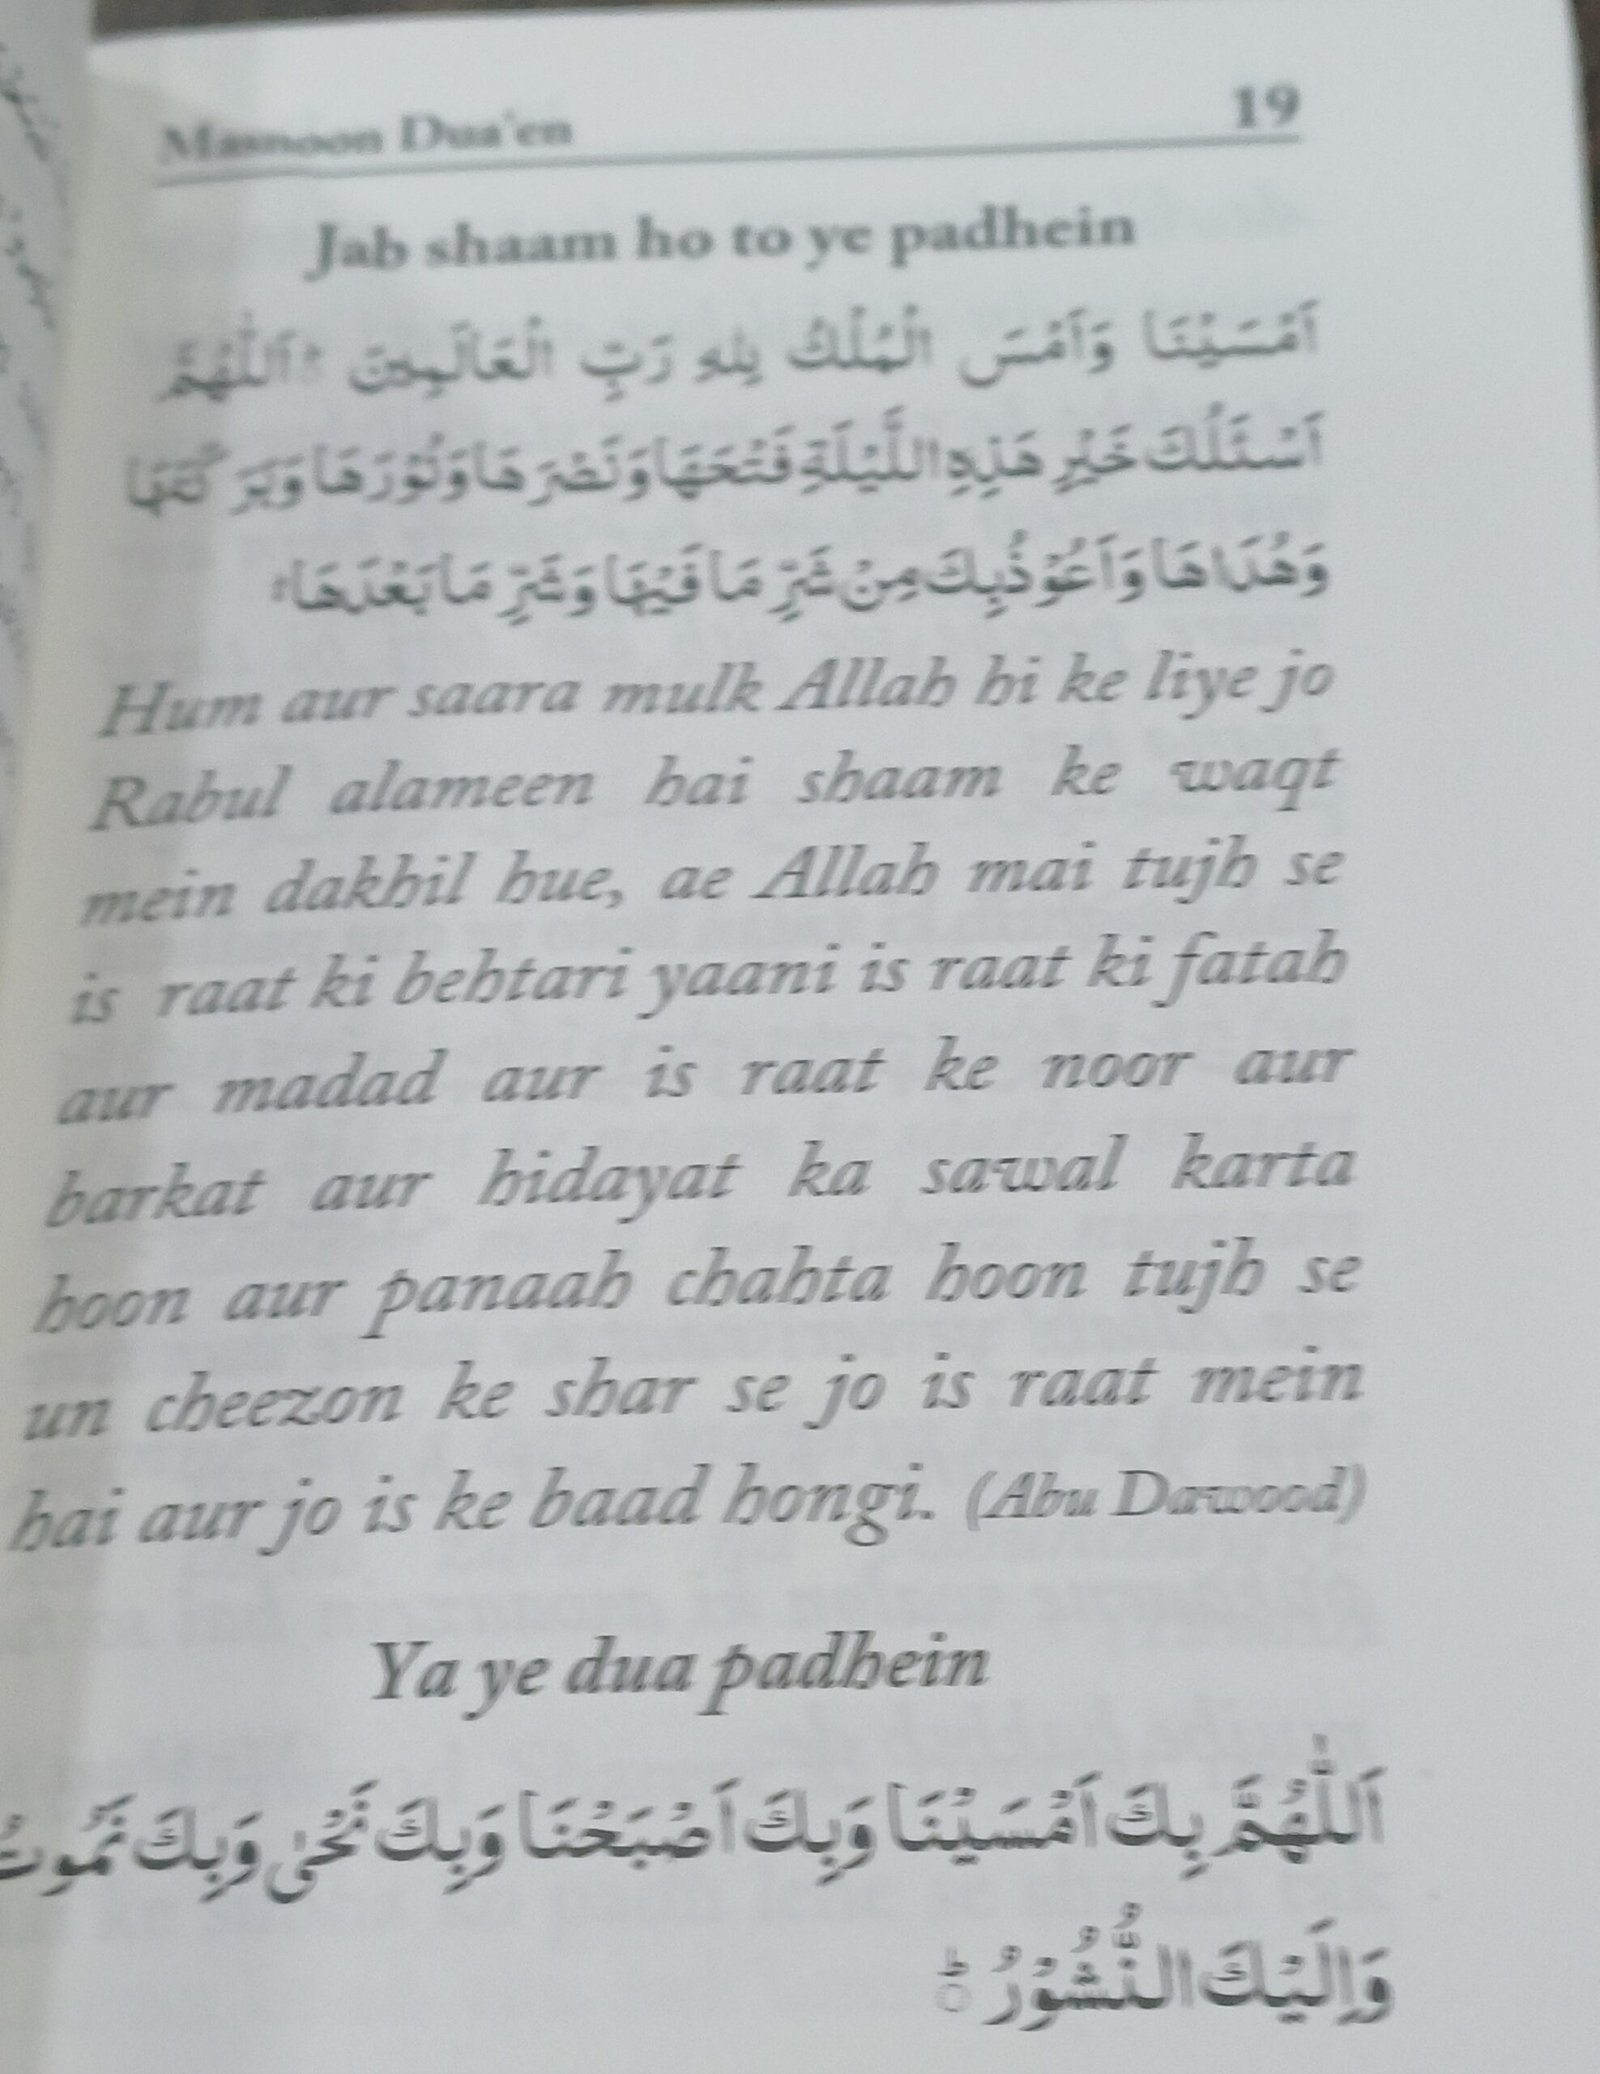 Masnoon Dua'en 19
Jab shaam ho to ye padhein
اَمْسَيْنَا وَاَمْسَى الْمُلْكُ لِلهِ رَبِّ الْعَالَمِينَ اَللّٰهُمَّ
اَسْئَلُكَ خَيْرِ هَذِهِ اللَّيْلَةِ فَتْحَهَا وَنَصْرَهَا وَنُوْرَهَا وَبَرَكَتَهَا
وَهُدَاهَا وَاَعُوْذُبِكَ مِنْ شَرِّ مَا فَيْهَا وَشَرِّ مَا بَعْدَهَا
Hum aur saara mulk Allah hi ke liye jo
Rabul alameen hai shaam ke waqt
mein dakhil hue, ae Allah mai tujh se
is raat ki behtari yaani is raat ki fatah
aur madad aur is raat ke noor aur
barkat aur hidayat ka sawal karta
hoon aur panaah chahta hoon tujh se
un cheezon ke shar se jo is raat mein
hai aur jo is ke baad hongi. (Abu Dawood)
Ya ye dua padhein
اَللّٰهُمَّ بِكَ اَمْسَيْنَا وَبِكَ اَصْبَحْنَا وَبِكَ نَحْىٰ وَبِكَ نَمُوتُ
وَاِلَيْكَ النُّشُوْرُ